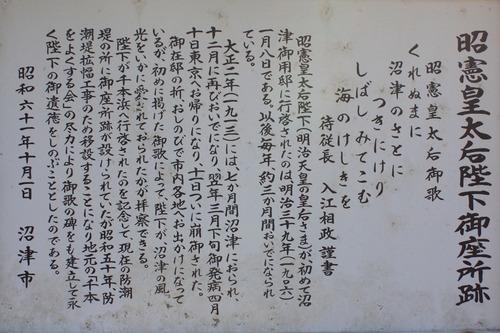 昭憲皇太后陛下御座所跡
昭憲皇太后御歌
くれぬまに
沼津のさとに
つきにけり
しばしみてこむ
海のけしきを
侍従長 入江相政謹書
昭憲皇太后陛下(明治天皇の皇后さま)が、初めて沼
津御用邸に行啓されたのは、明治三十九年(一九〇六)
一月八日である。以後毎年約三か月間おいでになられ
ている。
大正二年(一九一三)には七か月間沼津におられ、
十二月に再びおいでになり、翌年三月下旬御発病四月
十日東京へお帰りになり、十一日ついに崩御された。
御在邸の折、おしのびで市内各地へお出かけになって
いるが、初めに掲げた御歌によって、陛下が、沼津の風
光をいかに愛されておられたかが拝察できる。
陛下が千本浜へ行啓されたのを記念して、現在の防潮
堤の所に御座所跡が設けられていたが昭和五十年、防
潮堤拡幅工事のため移設することになり地元の「千本
をよくする会」の尽力により御歌の碑をも建立して永
く陛下の御遺徳をしのぶこととしたのである。
昭和六十一年十月一日 沼津市